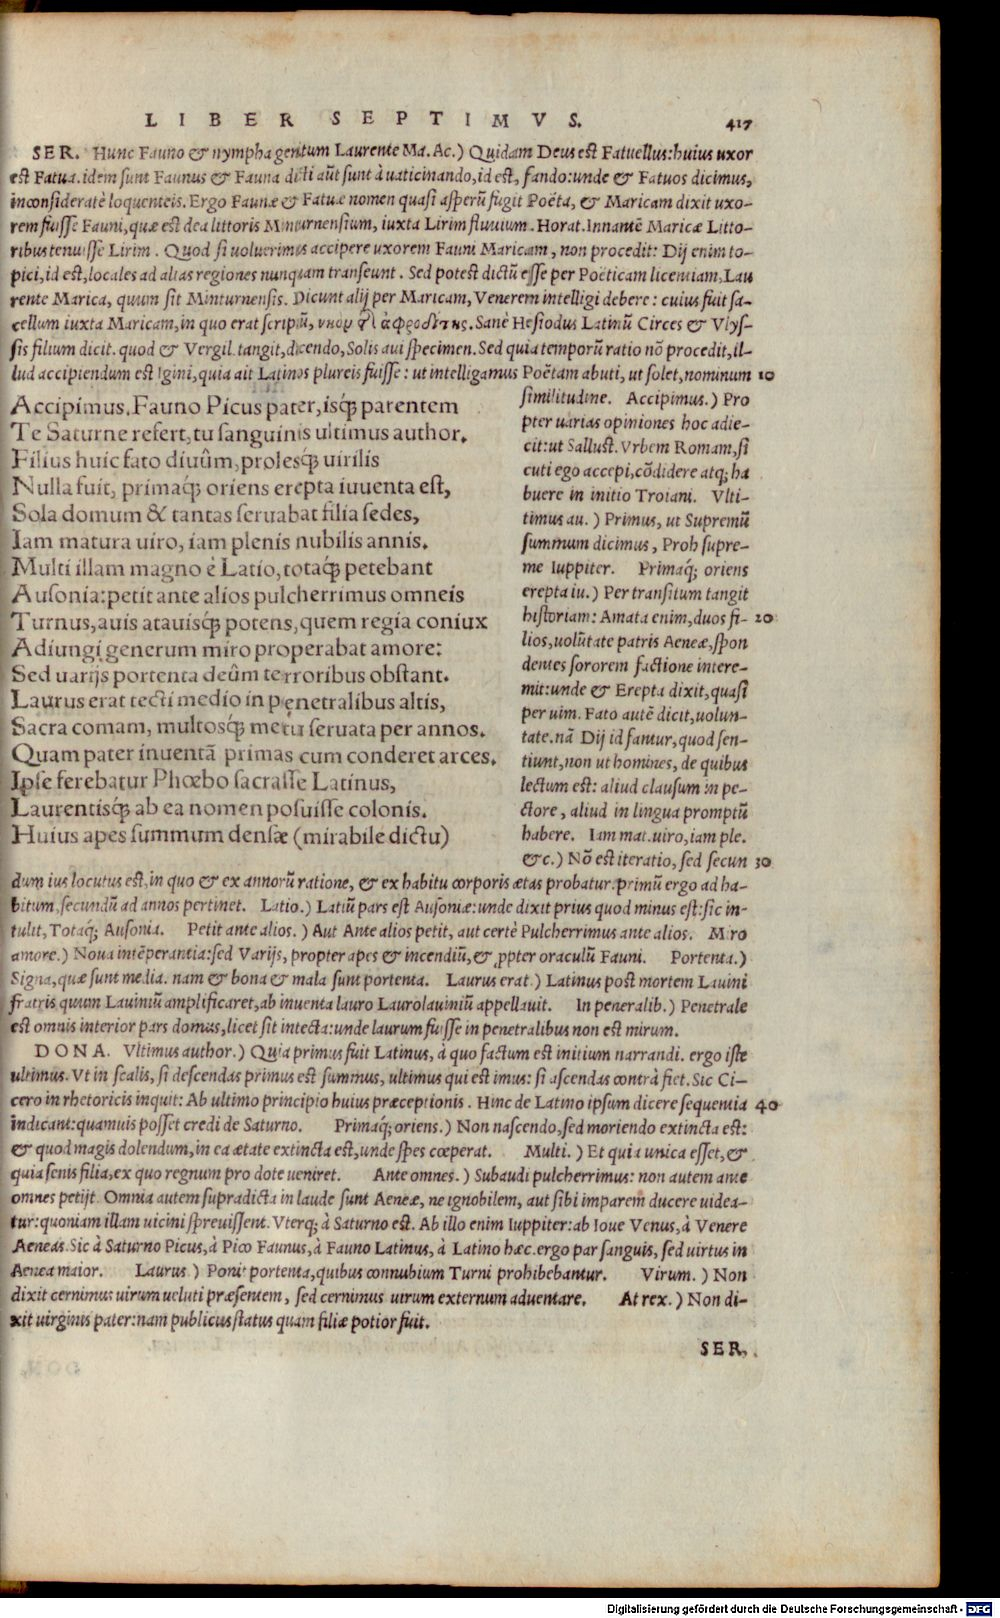 LIBER SEPTIMVS. 417
SER. Hunc Fauno & nympha genitum Laurente Ma. Ac.) Quidam Deus est Fatuellus: huius uxor
est Fatua. idem sunt Faunus & Fauna dicti aũt sunt à uaticinando, id est, fando: unde & Fatuos dicimus,
inconsideratè loquenteis. Ergo Faunæ & Fatuæ nomen quasi asperũ fugit Poëta, & Maricam dixit uxo-
rem fuisse Fauni, quæ est dea littoris Minturnensium, iuxta Lirim fluuium. Horat. Innantẽ Maricæ Litto-
ribus tenuisse Lirim. Quod si uoluerimus accipere uxorem Fauni Maricam, non procedit: Dij enim to-
pici, id est, locales ad alias regiones nunquam transeunt. Sed potest dictũ esse per Poëticam licentiam, Lau
rente Marica, quum sit Minturnensis. Dicunt alij per Maricam, Venerem intelligi debere: cuius fuit sa-
cellum iuxta Maricam, in quo erat scriptũ, ἀφροδίτης. Sanè Hesiodus Latinũ Circes & Vlys-
sis filium dicit. quod & Vergil. tangit, dicendo, Solis aui specimen. Sed quia temporũ ratio nõ procedit, il-
lud accipiendum est Igini, quia ait Latinos plureis fuisse: ut intelligamus Poëtam abuti, ut solet, nominum 10
Accipimus. Fauno Picus pater, isq́ꝫ parentem
Te Saturne refert, tu sanguinis ultimus author.
Filius huic fato diuûm, prolesq́ꝫ uirilis
Nulla fuit, primaq́ꝫ oriens erepta iuuenta est,
Sola domum & tantas seruabat filia sedes,
Iam matura uiro, iam plenis nubilis annis.
Multi illam magno è Latio, totaq́ꝫ petebant
Ausonia: petit ante alios pulcherrimus omneis
Turnus, auis atauisq́ꝫ potens, quem regia coniux
Adiungi generum miro properabat amore:
Sed uarijs portenta deûm terroribus obstant.
Laurus erat tecti medio in penetralibus altis,
Sacra comam, multosq́ꝫ metu seruata per annos.
Quam pater inuentã primas cum conderet arces.
Ipse ferebatur Phœbo sacrasse Latinus,
Laurentisq́ꝫ ab ea nomen posuisse colonis.
Huius apes summum densæ (mirabile dictu)
similitudine. Accipimus.) Pro
pter uarias opiniones hoc adie-
cit: ut Sallust. Vrbem Romam, si
cuti ego accepi, cõdidere atq; ha
buere in initio Troiani. Vlti-
timus au.) Primus, ut Supremũ
summum dicimus, Proh supre-
me Iuppiter. Primaq́; oriens
erepta iu.) Per transitum tangit
historiam: Amata enim, duos fi- 20
lios, uolũtate patris Aeneæ, spon
dentes sororem factione intere-
mit: unde & Erepta dixit, quasi
per uim. Fato autẽ dicit, uolun-
tate. nã Dij id fantur, quod sen-
tiunt, non ut homines, de quibus
lectum est: aliud clausum in pe-
ctore, aliud in lingua promptũ
habere. Iam mat. uiro, iam ple.
&c.) Nõ est iteratio, sed secun 30
dum ius locutus est, in quo & ex annorũ ratione, & ex habitu corporis ætas probatur. primũ ergo ad ha-
bitum, secundũ ad annos pertinet. Latio.) Latiũ pars est Ausoniæ: unde dixit prius quod minus est: sic in-
tulit, Totaq́; Ausonia. Petit ante alios.) Aut Ante alios petit, aut certè Pulcherrimus ante alios. Miro
amore.) Noua intẽperantia: sed Varijs, propter apes & incendiũ, & ꝓpter oraculũ Fauni. Portenta.)
Signa, quæ sunt media. nam & bona & mala sunt portenta. Laurus erat.) Latinus post mortem Lauini
fratris, quum Lauiniũ amplificaret, ab inuenta lauro Laurolauiniũ appellauit. In peneralib.) Penetrale
est omnis interior pars domus, licet sit intecta: unde laurum fuisse in penetralibus non est mirum.
DONA. Vltimus author.) Quia primus fuit Latinus, à quo factum est initium narrandi. ergo iste
ultimus. Vt in scalis, si descendas primus est summus, ultimus qui est imus: si ascendas contrà fiet. Sic Ci-
cero in rhetoricis inquit: Ab ultimo principio huius præceptionis. Hinc de Latino ipsum dicere sequentia 40
indicant: quamuis posset credi de Saturno. Primaq́; oriens.) Non nascendo, sed moriendo extincta est:
& quod magis dolendum, in ea ætate extincta est, unde spes cœperat. Multi.) Et quia unica esset, &
quia senis filia, ex quo regnum pro dote ueniret. Ante omnes.) Subaudi pulcherrimus: non autem ante
omnes petijt. Omnia autem supradicta in laude sunt Aeneæ, ne ignobilem, aut sibi imparem ducere uidea-
tur: quoniam illam uicini spreuissent. Vterq; à Saturno est. Ab illo enim Iuppiter: ab Ioue Venus, à Venere
Aeneas. Sic à Saturno Picus, à Pico Faunus, à Fauno Latinus, à Latino hæc. ergo par sanguis, sed uirtus in
Aenea maior. Laurus.) Ponit portenta, quibus connubium Turni prohibebantur. Virum.) Non
dixit cernimus uirum ueluti præsentem, sed cernimus uirum externum aduentare. At rex.) Non di-
xit uirginis pater: nam publicus status quam filiæ potior fuit.
SER.
Digitalisierung gefördert durch die Deutsche Forschungsgemeinschaft - DFG